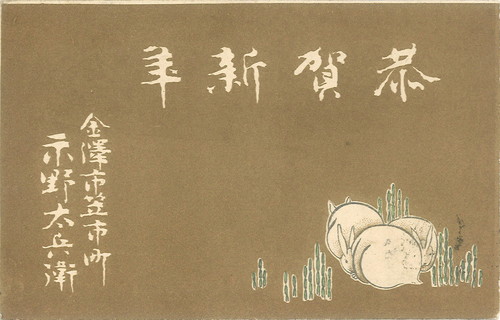 恭賀新年
金澤市笠市町
示野太兵衛